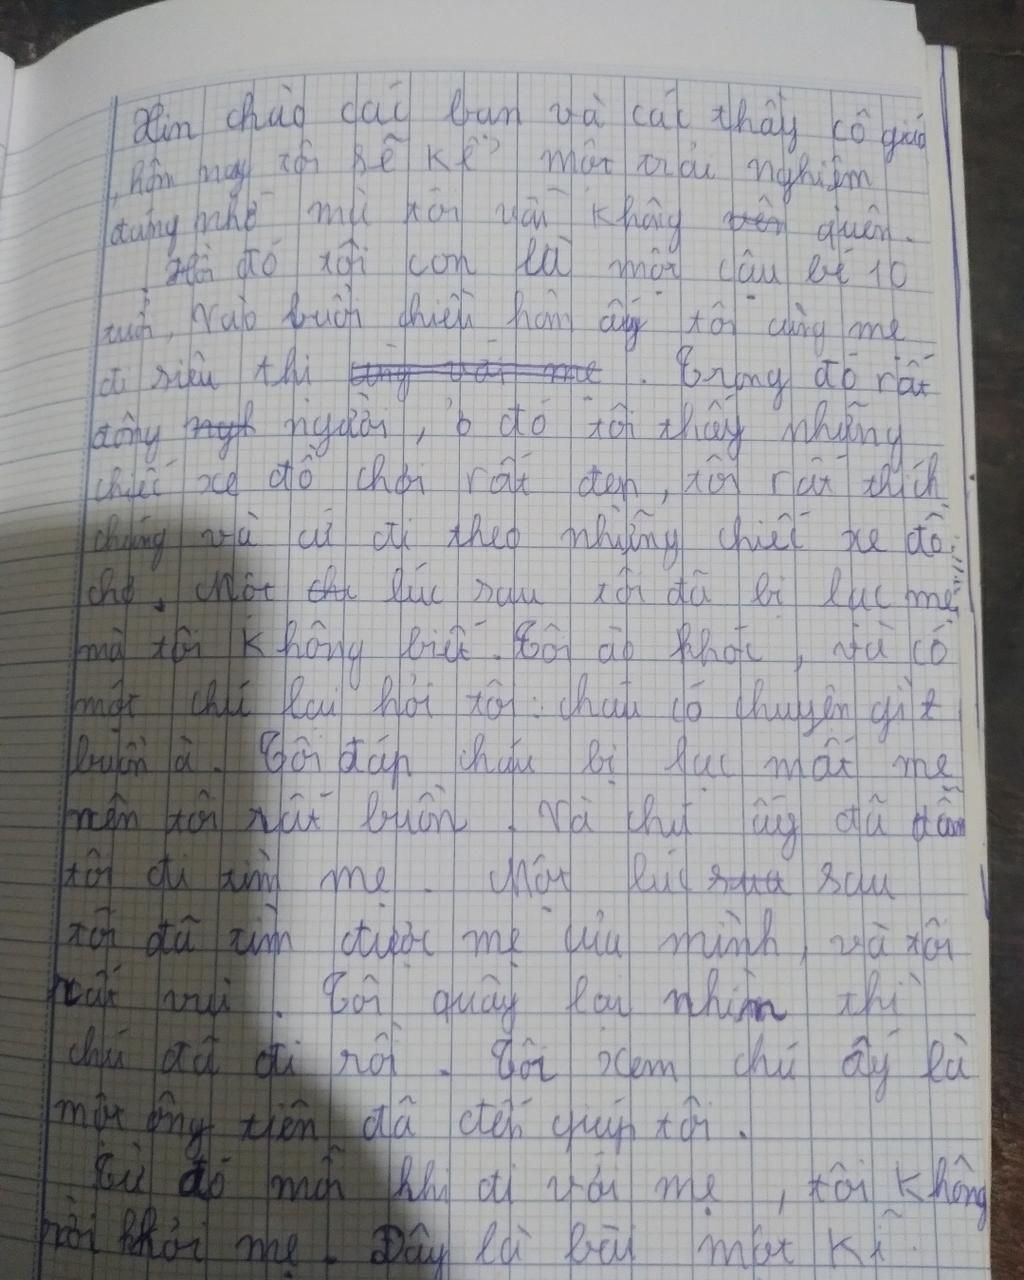 Xin chào các bạn và các thầy cô giáo
, hôm nay tôi sẽ kể một trải nghiệm
đáng nhớ mà tôi vẫn không quên.
Hồi đó tôi còn là một cậu bé 10
tuổi, Vào buổi chiều hôm ấy tôi cùng mẹ
đi siêu thị . Trong đó rất
đông người, ở đó tôi thấy những
chiếc xe đồ chơi rất đẹp, tôi rất thích
chúng và cứ đi theo những chiếc xe đồ
chơ. Một lúc sau tôi đã bị lạc mẹ
mà tôi không biết. Tôi oà khóc, và có
một chú lại hỏi tôi: cháu có chuyện gì
buồn à. Tôi đáp cháu bị lạc mất mẹ
nên tôi rất buồn. Và chú ấy đã dẫn
tôi đi tìm mẹ. Một lúc sau
tôi đã tìm được mẹ của mình, và tôi
rất vui. Tôi quay lại nhìn thì
chú đã đi rồi. Tôi xem chú ấy là
một ông tiên đã đến giúp tôi.
Từ đó mỗi khi đi với mẹ, tôi không
rời khỏi mẹ. Đây là bài một kỉ